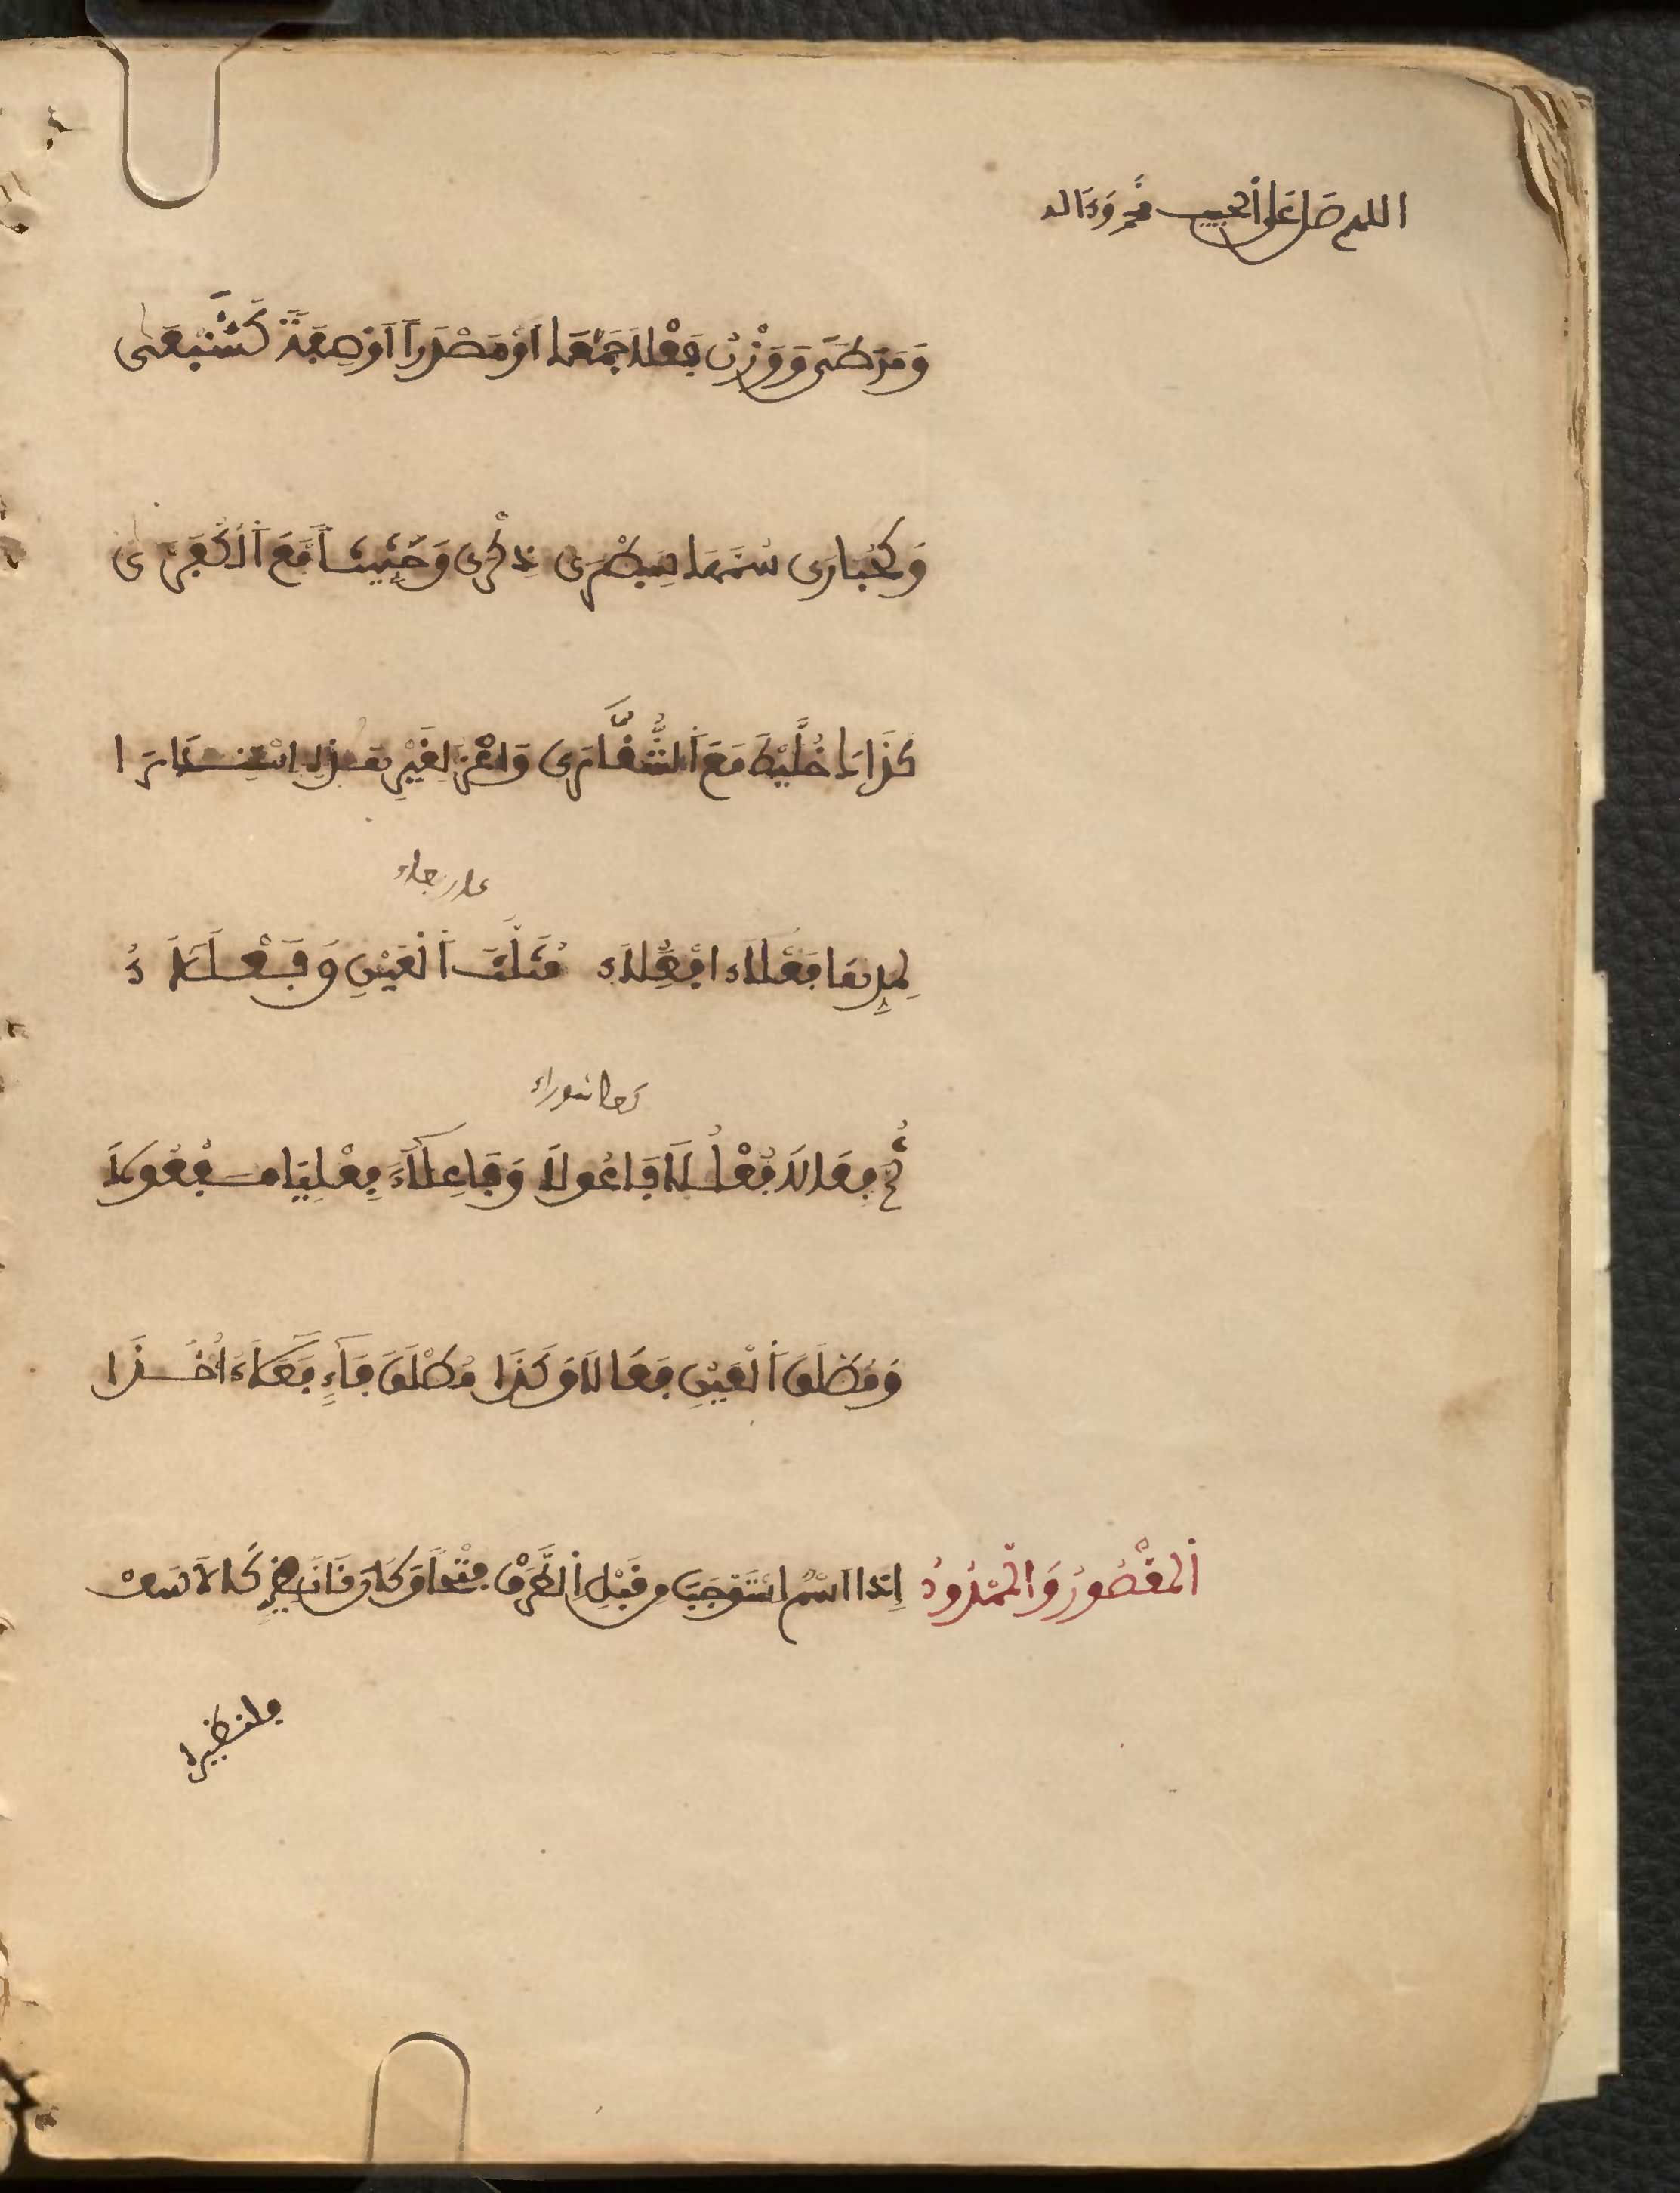 اللهم صل على الحبيب محمد وءاله
وَمَرَطَى وَوَزْنُ فَعْلَى جَمْعَا أَوْ مَصْدَراً أَوْ صِفَةً كَشَبْعَى
وَكَحُبَارَى سُمَّهَى سِبَطْرَى ذِكْرَى وَحِثِّيثَى مَعَ الْكُفُرَّى
كَذَاكَ خُلَّيْطَى مَعَ الشُّقَّارَى وَاعْزُ لِغَيْرِ هَذِهِ اسْتِنْدَارَا
لِمَدِّهَا فَعْلَاءُ افْعِلَاءُ مُثَلَّثَ الْعَيْنِ وَفَعْلَلَاءُ
ثُمَّ فِعَالَا فُعْلُلَا فَاعُولَا وَفَاعِلَاءُ فِعْلِيَا مَفْعُولَا
كعاشوراء
وَمُطْلَقَ الْعَيْنِ فَعَالَا وَكَذَا مُطْلَقَ فَاءٍ فَعَلَاءُ أُخِذَا
الْمَقْصُورُ وَالْمَمْدُودُ إِذَا اسْمٌ اسْتَوْجَبَ مِنْ قَبْلِ الطَّرَفْ فَتْحاً وَكَانَ ذَا نَظِيرٍ كَالْأَسَفْ
فلنظيره